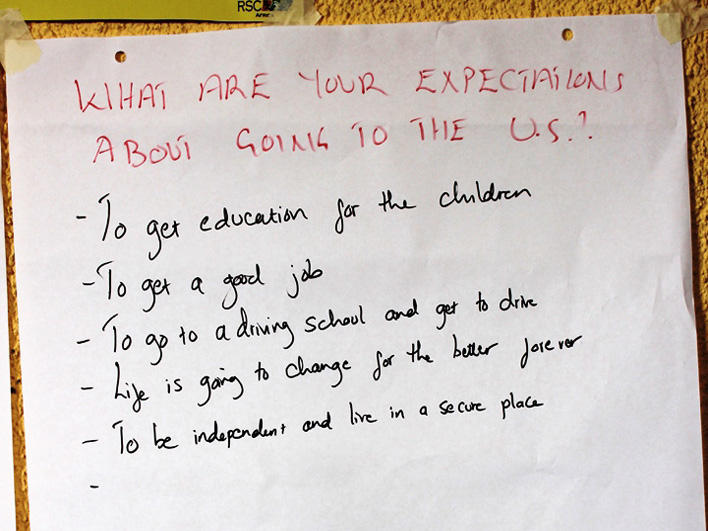 RSC
WHAT ARE YOUR EXPECTATIONS
ABOUT GOING TO THE U.S.?
- To get education for the children
- To get a good job
- To go to a driving school and get to drive
- Life is going to change for the better forever
- To be independent and live in a secure place
-